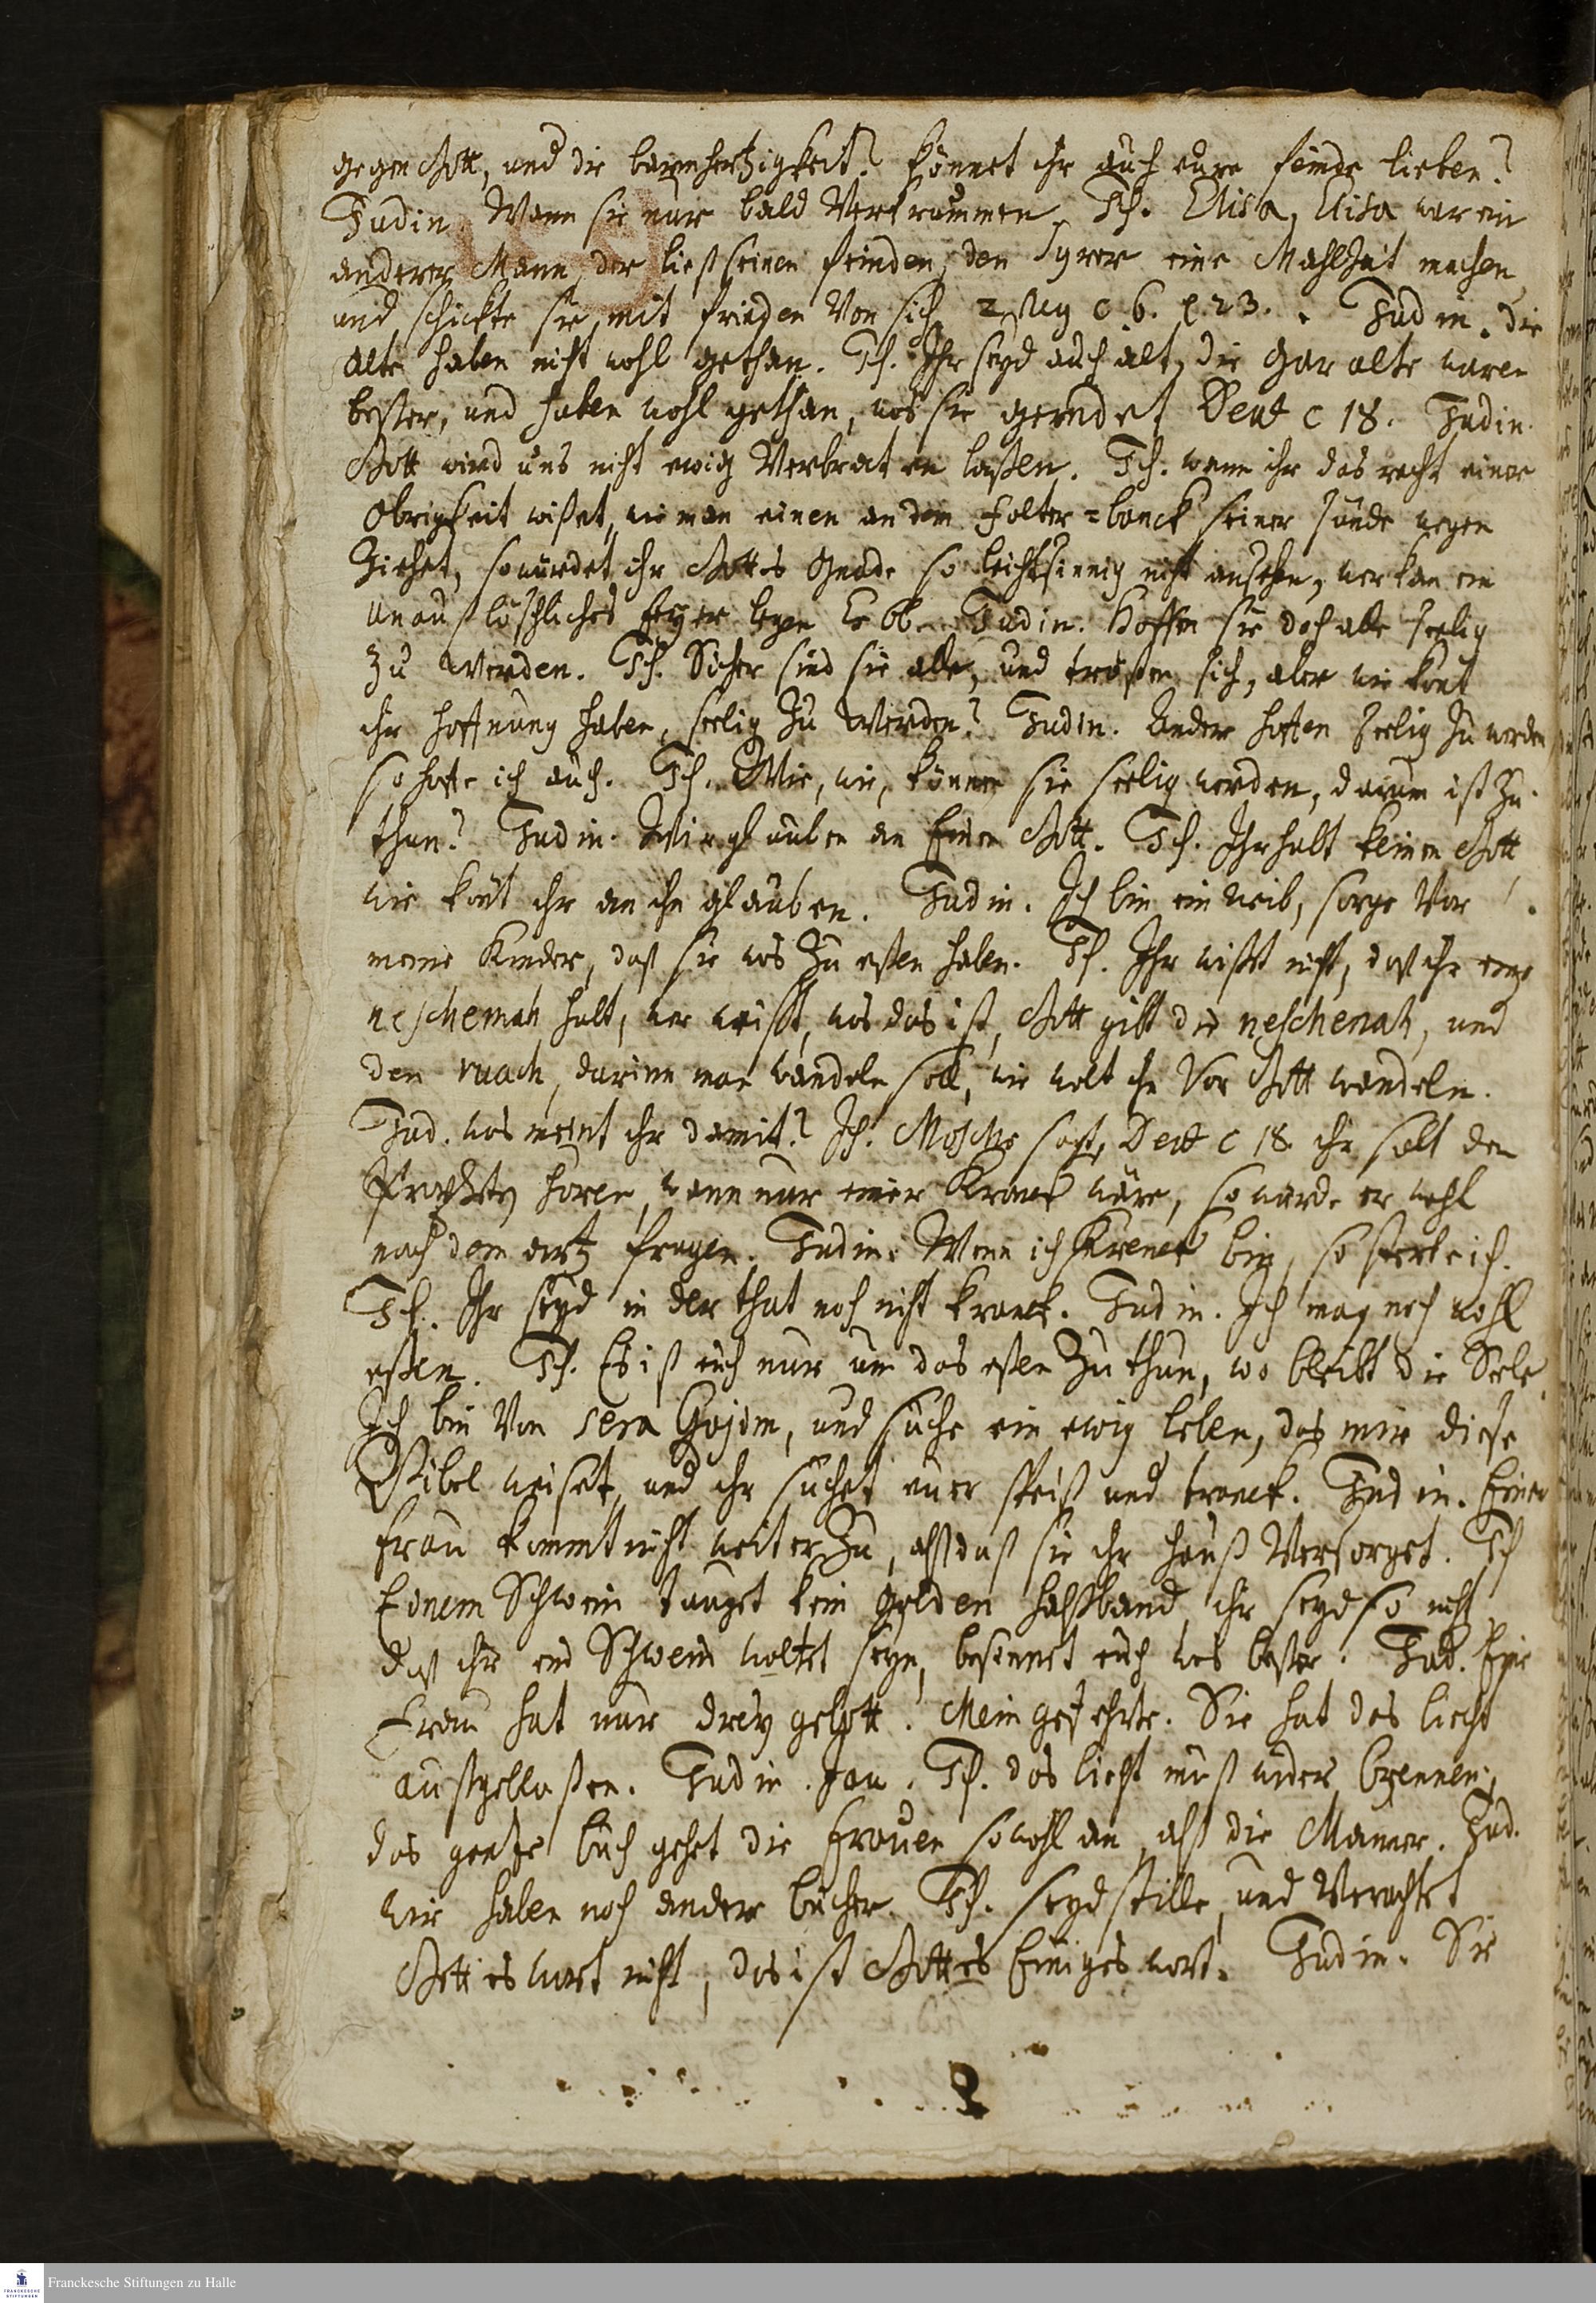 gegen Gott, und die barmhertzigkeit? könnet ihr auch eure feinde lieben?
Judin Wann sie nur bald Verkrummen. Ich. Elisa, Elisa war ein
anderer Mann, der ließ seinen feinden, den Syrer eine Mahlzeit machen,
und schickte sie mit frieden Von sich 2 Reg c. 6. v 23. Judin. die
Alte haben nicht wohl gethan. Ich. Ihr seyd auch alt, die Gar alte waren
besser, und haben wohl gethan, was sie geredet Deut c 18. Judin.
Gott wird uns nicht ewig Verbraten laßen. Ich. wann ihr das recht einer
Obrigkeit wißet, wie man einen an dem Folter=banck seiner sünde wegen
Ziehet, so würdet ihr Gottes Gnade so leichtsinnig nicht ansehen, wer kan ein
unaußlöschliches feyer legen Es 66. Judin. Hoffen sie doch alle seelig
zu werden. Ich. Sicher sind sie alle, und trösten sich, aber wie könt
ihr hoffnung haben, seelig zu werden? Judin. Andere hoffen seelig zu werden
so hoffe ich auch. Ich. Wie, wie, können sie seelig werden, darum ist zu
thun? Judin. Wir glauben an Einen Gott. Ich. Ihr habt keinen Gott
wie könt ihr an ihn glauben. Judin. Ich bin ein weib, sorge Vor
meine Kinder, daß sie was zu eßen haben. Ich. Ihr wißt nicht, daß ihr eine
neschemah habt, wer weißt, was das ist, Gott gibt die neschemah, und
den ruach, darinn man wandeln soll, wie wolt ihr Vor Gott wandeln.
Jud. was meint ihr damit? Ich. Mosche sagt, Deut c 18 ihr solt den
Propheten hören, wann nur einer Kranck wäre, so würde er wohl
nach dem artz fragen. Judin. Wenn ich Kranck bin, so sterbe ich.
Ich. Ihr seyd in der that noch nicht kranck. Judin. Ich mag noch wohl
eßen. Ich. Es ist euch nur um das eßen Zu thun, wo bleibt die Seele.
Ich bin Von sera Gojim, und suche ein ewig leben, das mir diese
Bibel weiset, und ihr suchet euer speiß und tranck. Judin. Einer
frau kommt nicht weiter Zu, alß daß sie ihr hauß Versorget. Ich
Einem Schwein tauget kein golden halßband, ihr seyd so nicht
daß ihr ein Schwein woltet seyn, besinnet euch was besser. Jud. Eine
Frau hat nur drey gebott. Mein gefehrte. Sie hat das licht
außgelaßen. Judin. Jau. Ich. das licht muß wider brennen,
das gantze buch gehet die Frauen sowohl an, alß die Männer. Jud.
wir haben noch andere bücher. Ich. seyd stille, und Verachtet
Gottes wort nicht, das ist Gottes Einiges wort. Judin. Sie
Franckesche Stiftungen zu Halle